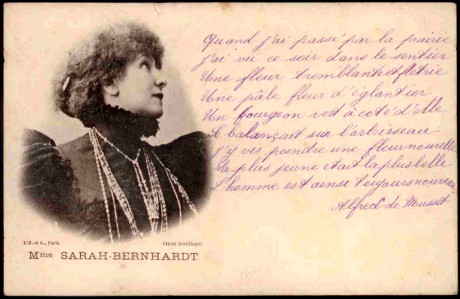 Quand j'ai passé par la prairie
j'ai vu ce soir dans le sentier
Une fleur tremblante et flétrie
Une pâle fleur d'églantier
Un bourgeon vert à coté d'elle
Se balançait sur l'arbrisseau
J'y vis poindre une fleur nouvelle
La plus jeune était la plus belle
L'homme est ainsi toujours nouveau
Alfred de Musset
Paris
Cliché
Mme SARAH-BERNHARDT